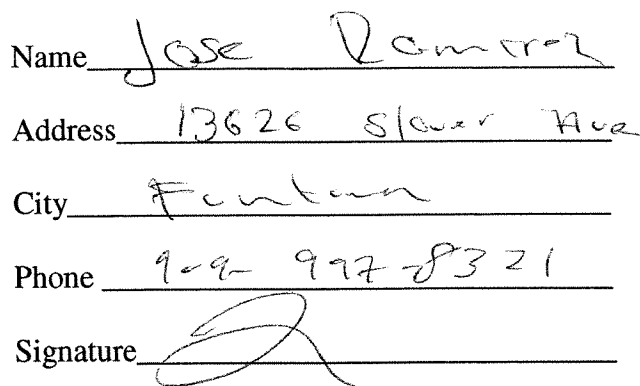 Name Jose Ramirez
Address 13626 Slover Ave
City Fontana
Phone 9-9- 997-8321
Signature